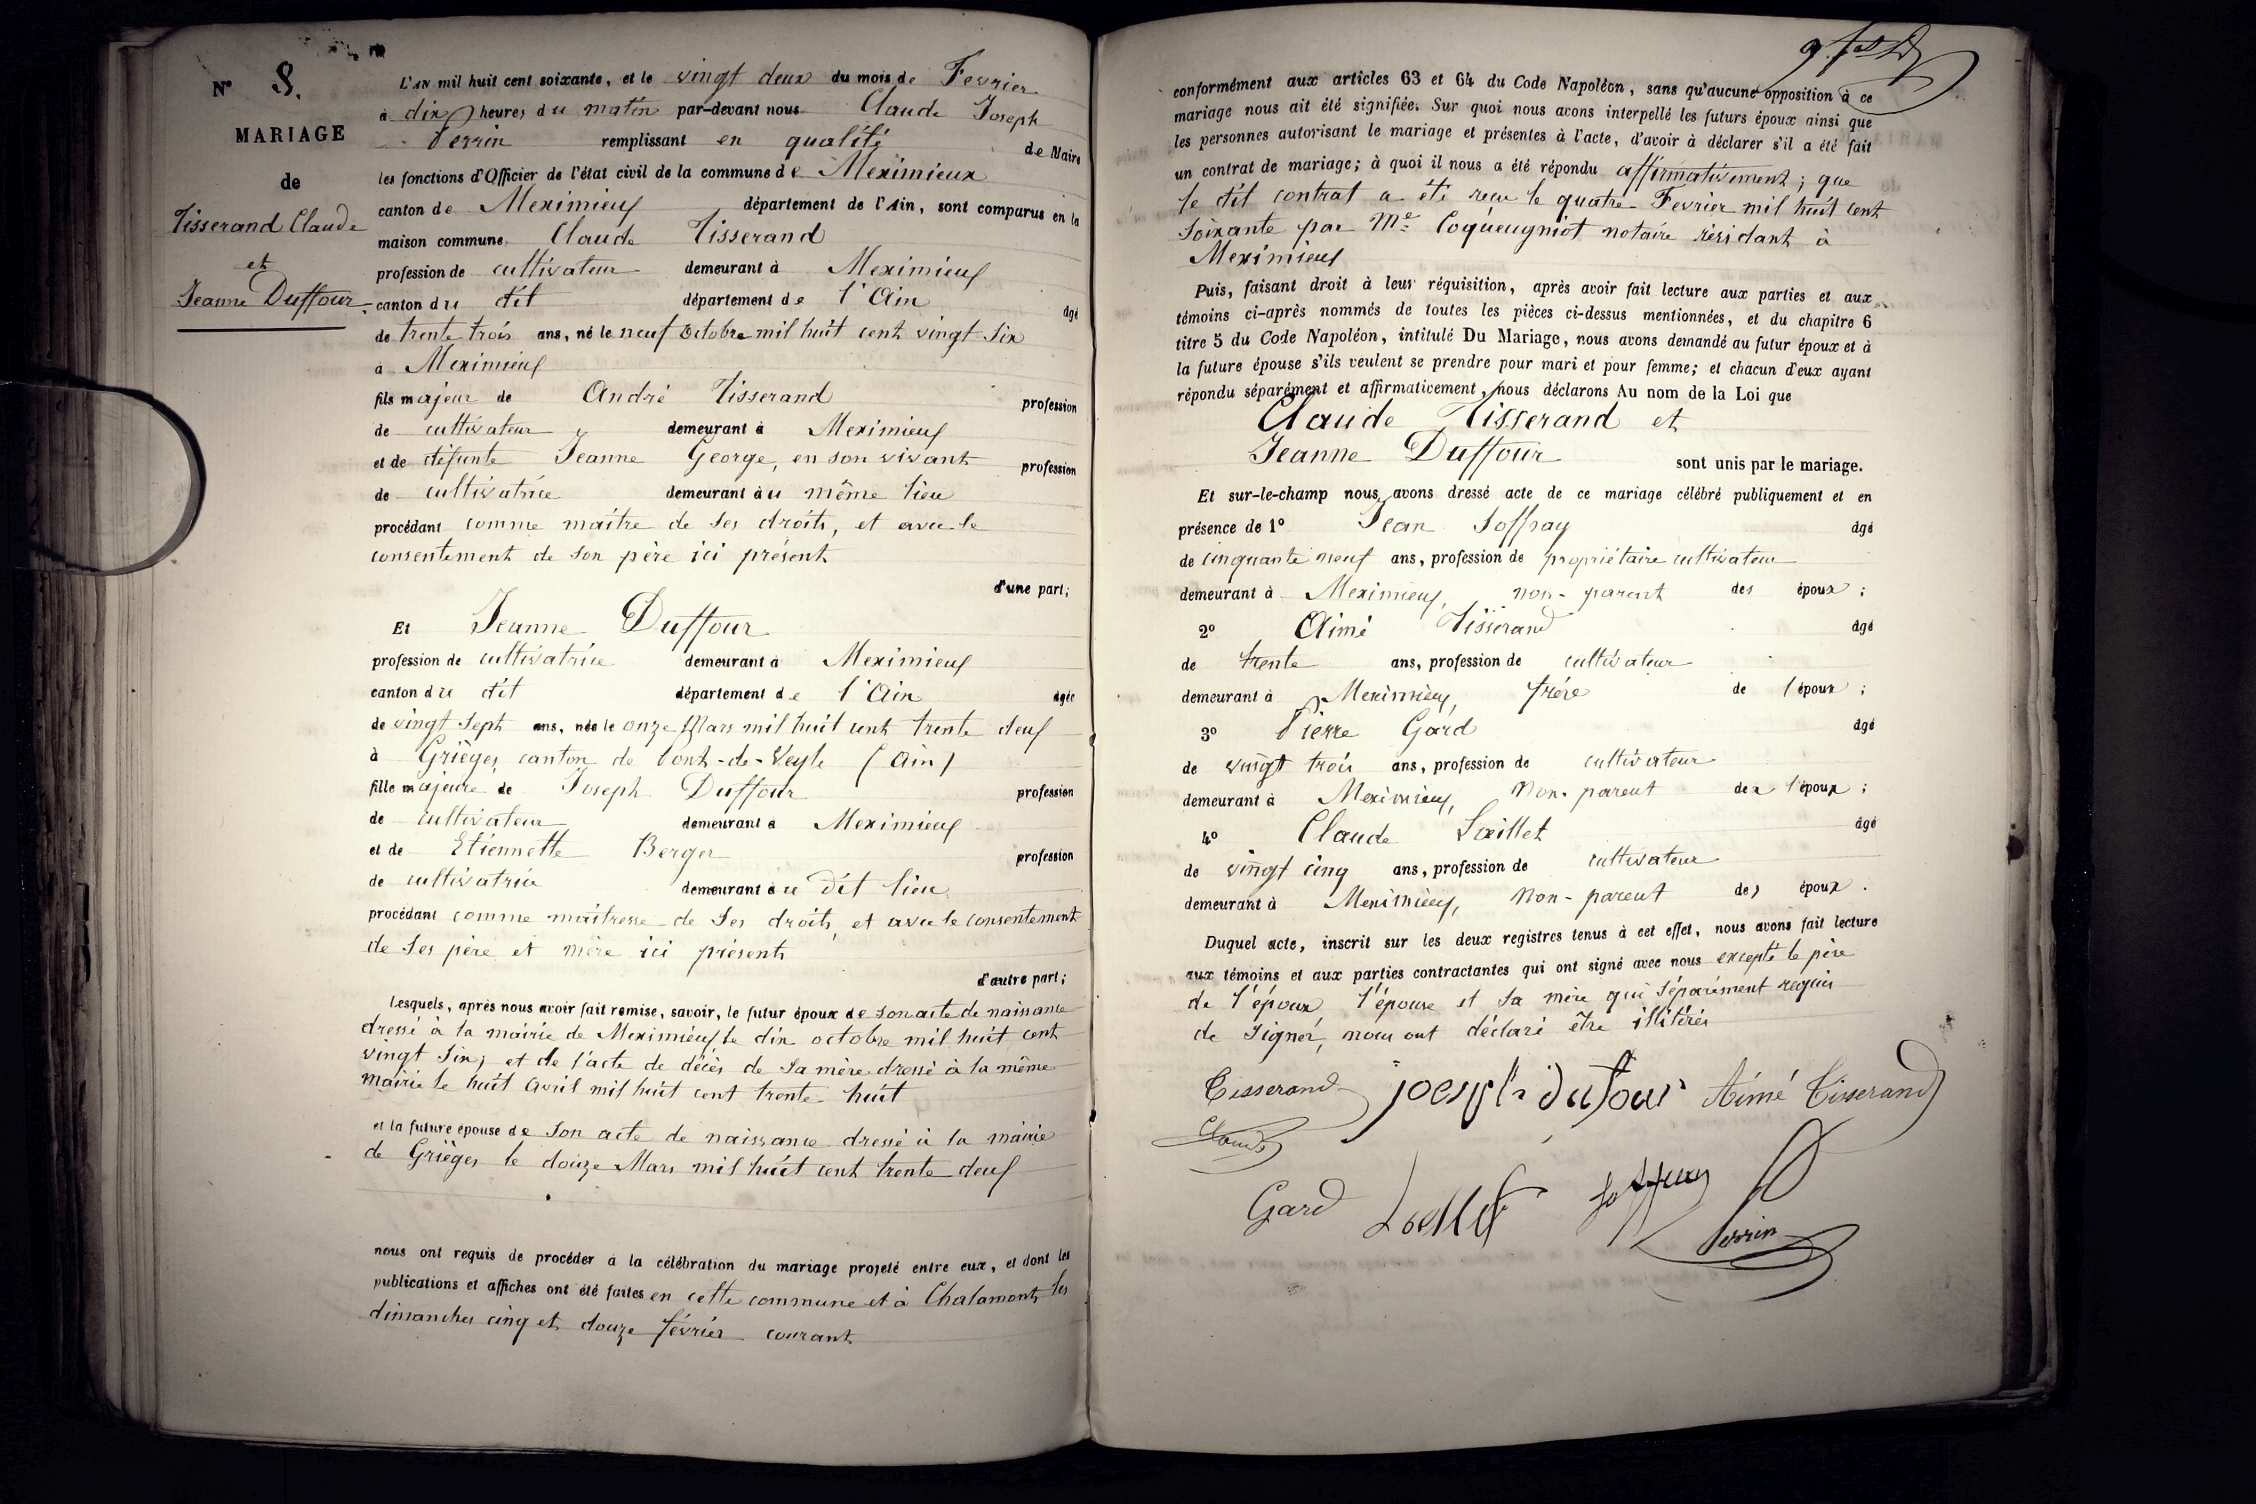 N° 8.
MARIAGE
de
Tisserand Claude
et
Jeanne Duffour
L'AN mil huit cent soixante, et le vingt deux du mois de Fevrier
à dix heures du matin par-devant nous Claude Joseph
Perrin remplissant en qualité de Maire
les fonctions d'Officier de l'état civil de la commune de Meximieux
canton de Meximieux département de l'Ain, sont comparus en la
maison commune Claude Tisserand
profession de cultivateur demeurant à Meximieux
canton du dit département de l'Ain âgé
de trente trois ans, né le neuf octobre mil huit cent vingt six
à Meximieux
fils majeur de André Tisserand profession
de cultivateur demeurant à Meximieux
et de défunte Jeanne George, en son vivant profession
de cultivatrice demeurant au même lieu
procédant comme maître de ses droits, et avec le
consentement de son père ici présent
d'une part;
Et Jeanne Duffour
profession de cultivatrice demeurant à Meximieux
canton du dit département de l'Ain âgée
de vingt sept ans, née le onze Mars mil huit cent trente deux
à Grièges canton de Pont-de-Veyle (Ain)
fille majeure de Joseph Duffour profession
de cultivateur demeurant à Meximieux
et de Etiennette Berger profession
de cultivatrice demeurant au dit lieu
procédant comme maîtresse de ses droits, et avec le consentement
de ses père et mère ici présents
d'autre part;
Lesquels, après nous avoir fait remise, savoir, le futur époux de son acte de naissance
dressé à la mairie de Meximieux le dix octobre mil huit cent
vingt six; et de l'acte de décès de sa mère dressé à la même
mairie le huit avril mil huit cent trente huit
et la future épouse de son acte de naissance dressé à la mairie
de Grièges le douze Mars mil huit cent trente deux
nous ont requis de procéder à la célébration du mariage projeté entre eux, et dont les
publications et affiches ont été faites en cette commune et à Chalamont les
dimanches cinq et douze février courant
conformément aux articles 63 et 64 du Code Napoléon, sans qu'aucune opposition à ce
mariage nous ait été signifiée. Sur quoi nous avons interpellé les futurs époux ainsi que
les personnes autorisant le mariage et présentes à l'acte, d'avoir à déclarer s'il a été fait
un contrat de mariage; à quoi il nous a été répondu affirmativement; que
le dit contrat a été reçu le quatre Fevrier mil huit cent
soixante par Me Coqueugniot notaire résidant à
Meximieux
Puis, faisant droit à leur réquisition, après avoir fait lecture aux parties et aux
témoins ci-après nommés de toutes les pièces ci-dessus mentionnées, et du chapitre 6
titre 5 du Code Napoléon, intitulé Du Mariage, nous avons demandé au futur époux et à
la future épouse s'ils veulent se prendre pour mari et pour femme; et chacun d'eux ayant
répondu séparément et affirmativement, nous déclarons Au nom de la Loi que
Claude Tisserand et
Jeanne Duffour sont unis par le mariage.
Et sur-le-champ nous avons dressé acte de ce mariage célébré publiquement et en
présence de 1° Jean Soffray âgé
de cinquante neuf ans, profession de propriétaire cultivateur
demeurant à Meximieux, non-parent des époux;
2° Aimé Tisserand âgé
de trente ans, profession de cultivateur
demeurant à Meximieux, frère de l'époux;
3° Pierre Gard âgé
de vingt trois ans, profession de cultivateur
demeurant à Meximieux, non-parent de l'époux;
4° Claude âgé
de vingt cinq ans, profession de cultivateur
demeurant à Meximieux, non-parent des époux.
Duquel acte, inscrit sur les deux registres tenus à cet effet, nous avons fait lecture
aux témoins et aux parties contractantes qui ont signé avec nous excepté le père
de l'époux, l'épouse et sa mère qui séparément requis
de signer, nous ont déclaré être illitérés
Tisserand joesph dufour Aimé Tisserand
Claude
Gard Soffray
Perrin